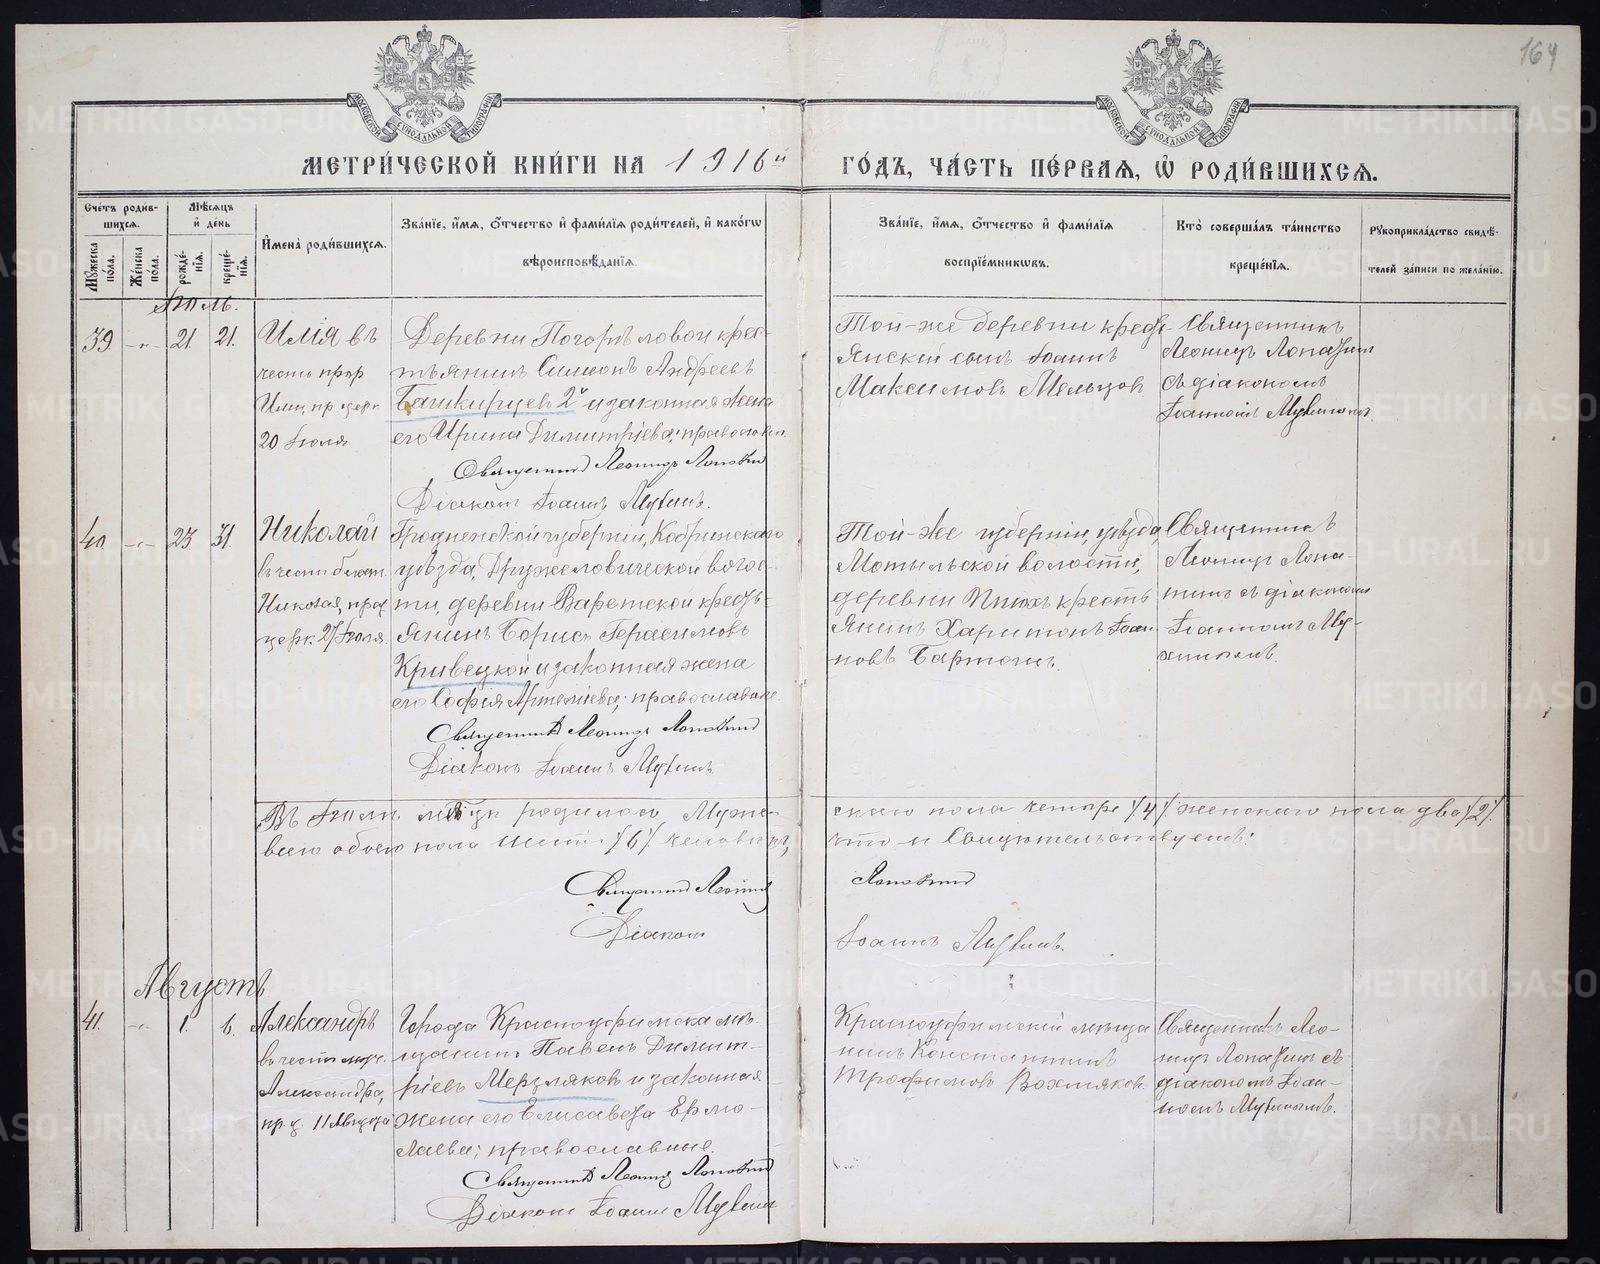 164
МОСКОВСКОЙ СѴНОДАЛЬНОЙ ТИПОГРАФІИ
МОСКОВСКОЙ СѴНОДАЛЬНОЙ ТИПОГРАФІИ
МЕТРИ́ЧЕСКОЙ КНИ́ГИ НА 1916й ГО́ДЪ, ЧА́СТЬ ПЕ́РВАЯ, Ѡ РОДИ́ВШИХСЯ.
Сче́тъ роди́в-
шихся.
Мꙋ́жеска по́ла.
Же́нска по́ла.
Мѣ́сяцъ
и де́нь
рожде́-
нїя.
креще́-
нїя.
И҆мена̀ роди́вшихся.
Зва́нїе, и҆́мя, о҆́тчество и҆ фами́лїя роди́телей, и҆ како́гѡ
вѣроисповѣ́данїя.
Зва́нїе, и҆́мя, о҆́тчество и҆ фами́лїя
воспрїе́мникѡвъ.
Кто̀ соверша́лъ та́инство
креще́нїя.
Рꙋкоприкла́дство свидѣ́-
телей за́писи по жела́нїю.
Іюль.
39
21.
21.
Илія въ
честь прор
Иліи, пр. церк
20 Іюля
Деревни Погорѣловой крес-
тьянинъ Симеонъ Андреевъ
Башкирцевъ 2й и законная жена
его Ирина Димитріева; православн.
Священникъ Леонидъ Лопатинъ
Діаконъ Іоаннъ
Той-же деревни кресть-
янскій сынъ Іоаннъ
Максимовъ Мельцовъ
Священникъ
Леонидъ Лопатинъ
съ діакономъ
Іоанномъ
40
23
31.
Николай
въ честь блажен.
Николая, праз
церк. 27 Іюля
Гродненской губерніи, Кобринскаго
уѣзда, Дружиловической волос-
ти, деревни кресть-
янинъ Борисъ Герасимовъ
Кривецкой и законная жена
его Софія Артеміева; православные
Священникъ Леонидъ Лопатинъ
Діаконъ Іоаннъ
Той-же губерніи, уѣзда,
Мотыльской волости,
деревни кресть
янинъ Харитонъ Іоан
новъ
Священникъ
Леонидъ Лопа-
тинъ съ діакономъ
Іоанномъ
Въ Іюлѣ мѣсяцѣ родилось Муже-
скаго пола четыре /4/ женскаго пола два /2/.
всего обоего пола шесть /6/ человѣкъ,
что и свидѣтельствуемъ:
Священникъ Леонидъ
Лопатинъ
Діаконъ
Іоаннъ
Августъ
41.
1.
6.
Александръ
въ честь муч.
Александра,
пр. ц. 11 Августа
Города Красноуфимска мѣ-
щанинъ Павелъ Димит-
ріевъ Мерзляковъ и законная
жена его Елисавета Ермо-
лаева; православные.
Священникъ Леонидъ Лопатинъ
Діаконъ Іоаннъ
Красноуфимскій мѣща
нинъ Константинъ
Трофимовъ Вохмяковъ.
Священникъ Лео-
нидъ Лопатинъ съ
діакономъ Іоан-
номъ
METRIKI.GASO-URAL.RU